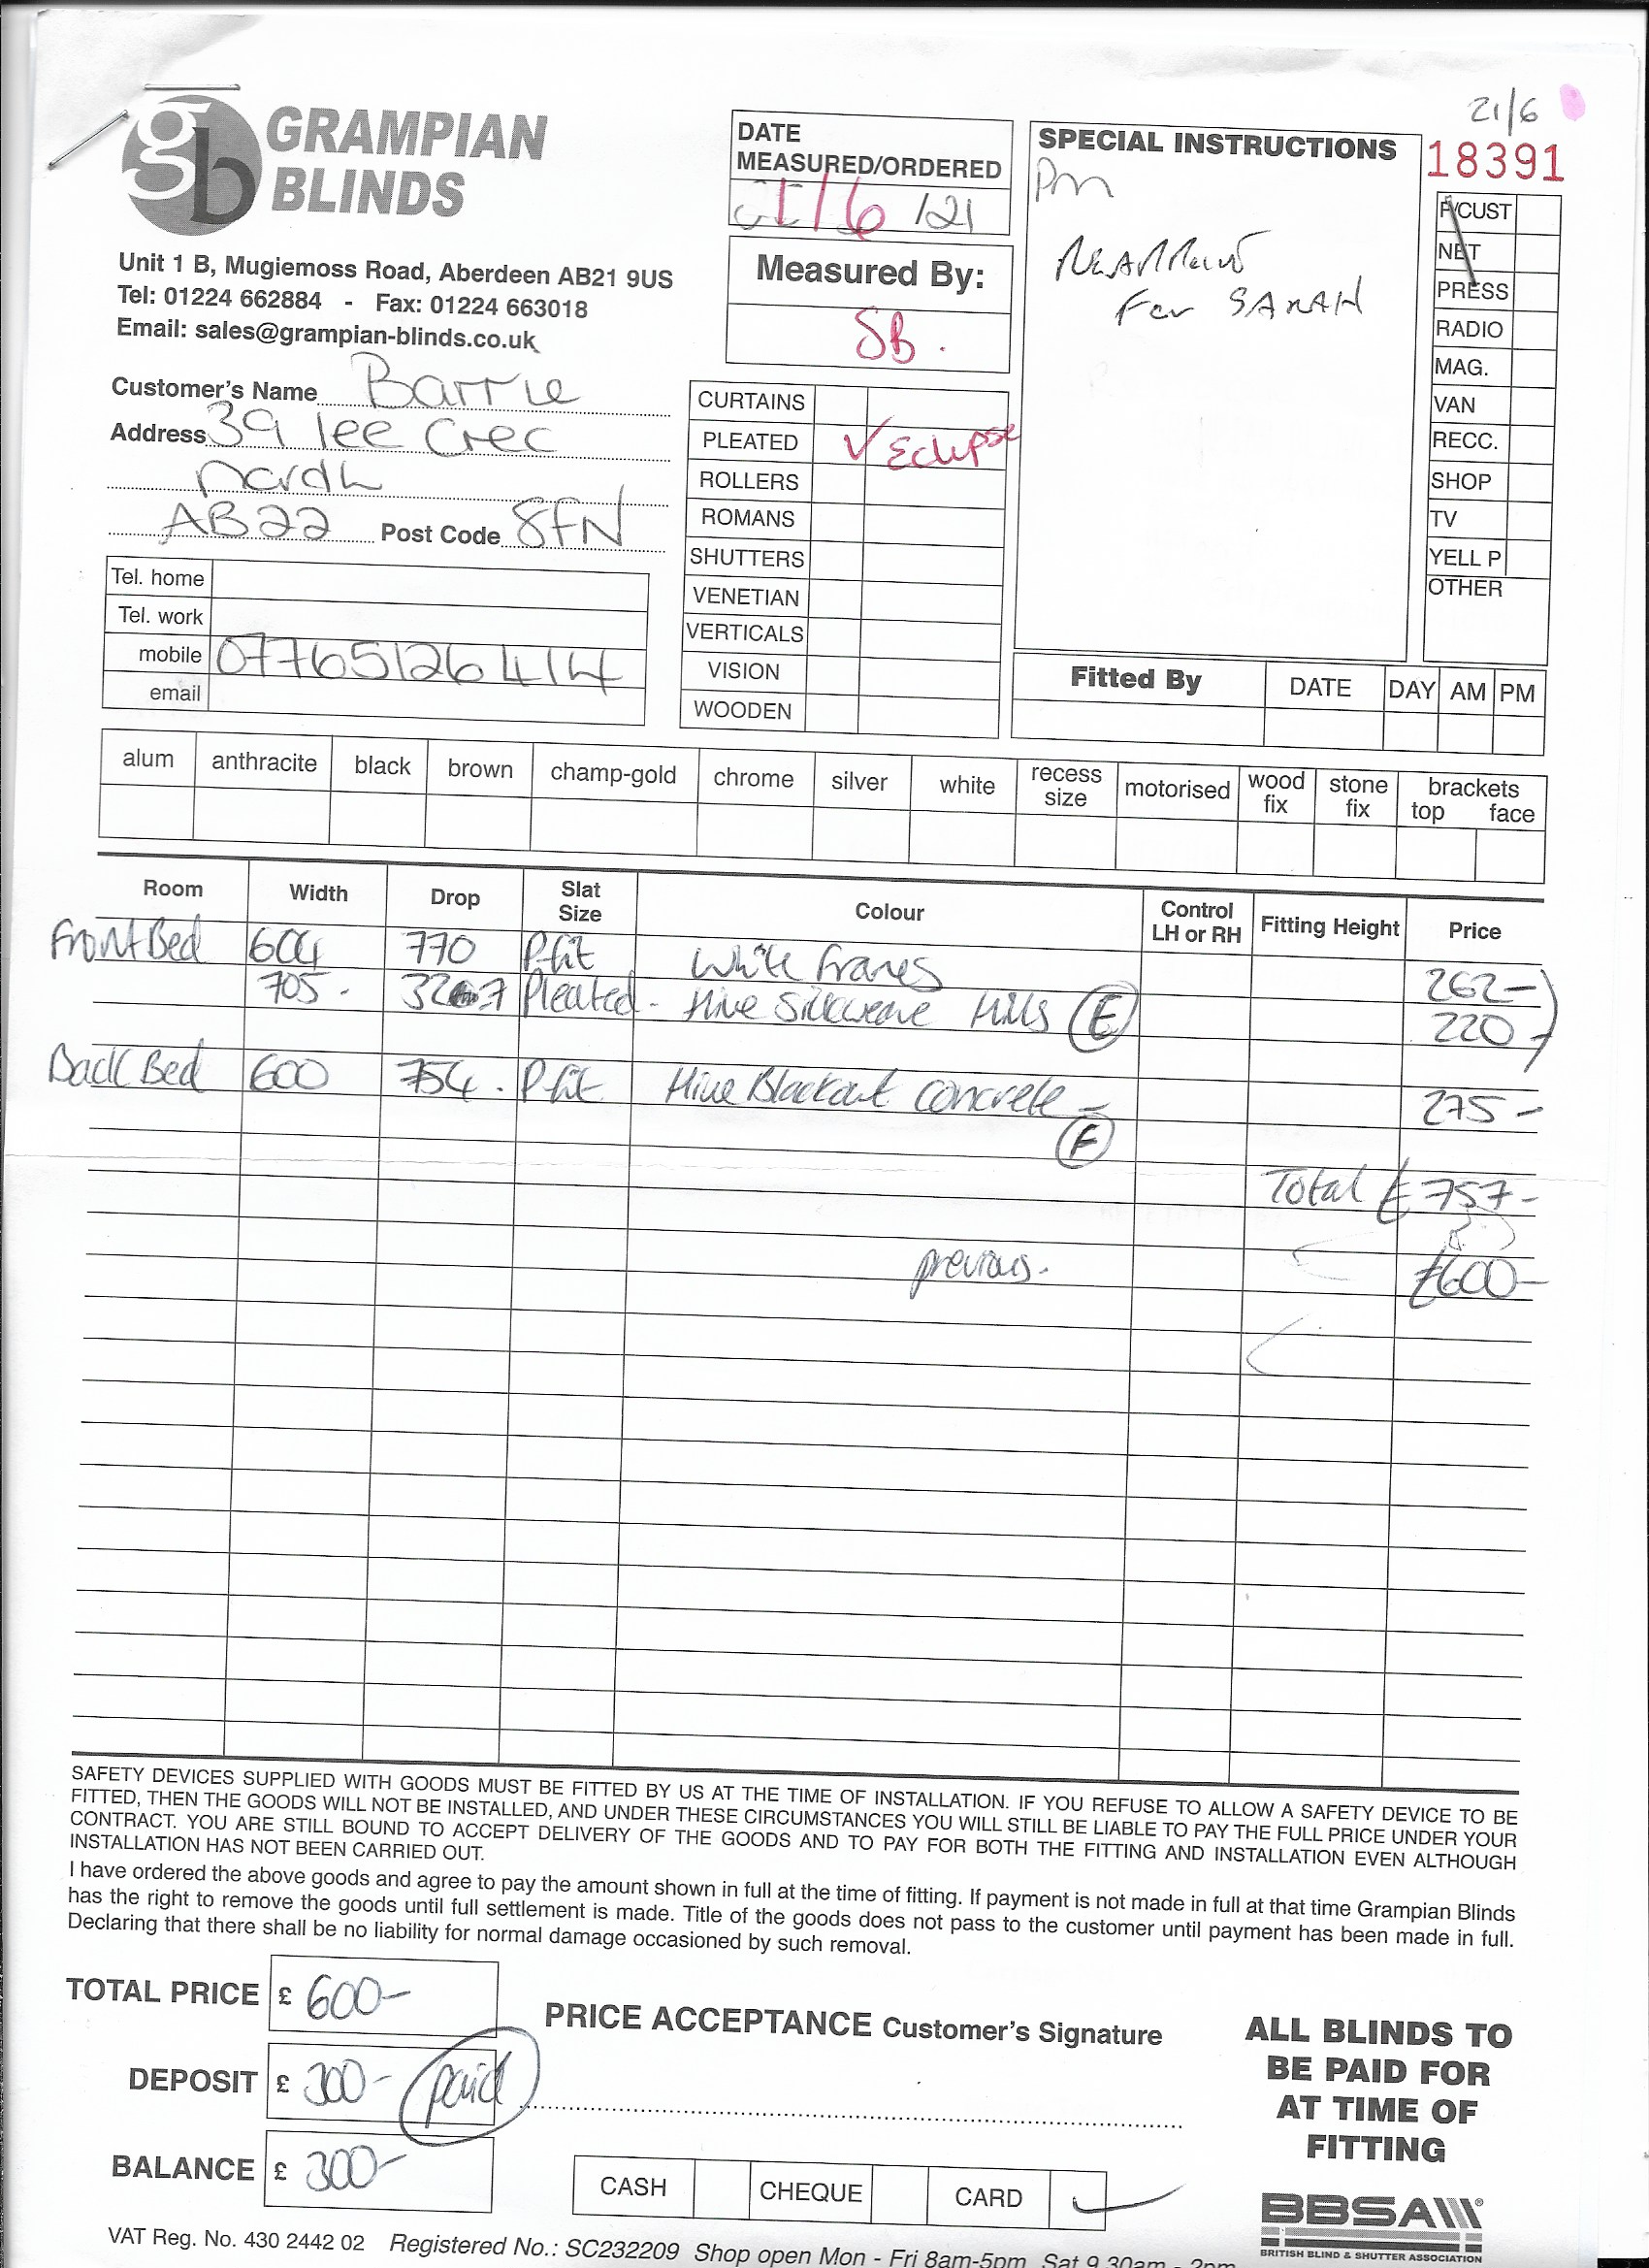 21/6
gb GRAMPIAN
BLINDS
Unit 1 B, Mugiemoss Road, Aberdeen AB21 9US
Tel: 01224 662884 - Fax: 01224 663018
Email: sales@grampian-blinds.co.uk
DATE
MEASURED/ORDERED
1/6 /21
Measured By:
SB.
SPECIAL INSTRUCTIONS
Pm
For SARAH
18391
P/CUST
NET
PRESS
RADIO
MAG.
VAN
RECC.
SHOP
TV
YELL P
OTHER
Customer's Name Barrie
Address 39 lee Crec
AB22 Post Code 8FN
Tel. home
Tel. work
mobile 07765126414
email
CURTAINS
PLEATED ✓ Eclipse
ROLLERS
ROMANS
SHUTTERS
VENETIAN
VERTICALS
VISION
WOODEN
Fitted By DATE DAY AM PM
alum anthracite black brown champ-gold chrome silver white recess size motorised wood fix stone fix brackets top face
Room Width Drop Slat Size Colour Control LH or RH Fitting Height Price
Front Bed 604 770 P.fit White Frames 262-
705- Pleated - Hive Silkweave Hills (E) 220-
Back Bed 600 754. P.fit Hive Blackout Concrete - 275-
(E)
Total £757-
previous. £600-
SAFETY DEVICES SUPPLIED WITH GOODS MUST BE FITTED BY US AT THE TIME OF INSTALLATION. IF YOU REFUSE TO ALLOW A SAFETY DEVICE TO BE
FITTED, THEN THE GOODS WILL NOT BE INSTALLED, AND UNDER THESE CIRCUMSTANCES YOU WILL STILL BE LIABLE TO PAY THE FULL PRICE UNDER YOUR
CONTRACT. YOU ARE STILL BOUND TO ACCEPT DELIVERY OF THE GOODS AND TO PAY FOR BOTH THE FITTING AND INSTALLATION EVEN ALTHOUGH
INSTALLATION HAS NOT BEEN CARRIED OUT.
I have ordered the above goods and agree to pay the amount shown in full at the time of fitting. If payment is not made in full at that time Grampian Blinds
has the right to remove the goods until full settlement is made. Title of the goods does not pass to the customer until payment has been made in full.
Declaring that there shall be no liability for normal damage occasioned by such removal.
TOTAL PRICE £ 600-
DEPOSIT £ 300- paid
BALANCE £ 300-
PRICE ACCEPTANCE Customer's Signature
CASH CHEQUE CARD ✓
ALL BLINDS TO
BE PAID FOR
AT TIME OF
FITTING
BBSA
BRITISH BLIND & SHUTTER ASSOCIATION
VAT Reg. No. 430 2442 02 Registered No.: SC232209 Shop open Mon - Fri 8am-5pm Sat 9.30am - 2pm